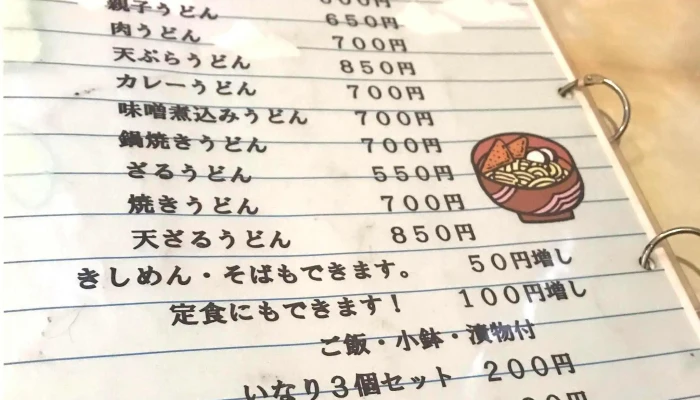 親子うどん 650円
肉うどん 700円
天ぷらうどん 850円
カレーうどん 700円
味噌煮込みうどん 700円
鍋焼きうどん 700円
ざるうどん 550円
焼きうどん 700円
天ざるうどん 850円
きしめん・そばもできます。 50円増し
定食にもできます! 100円増し
ご飯・小鉢・漬物付
いなり3個セット 200円